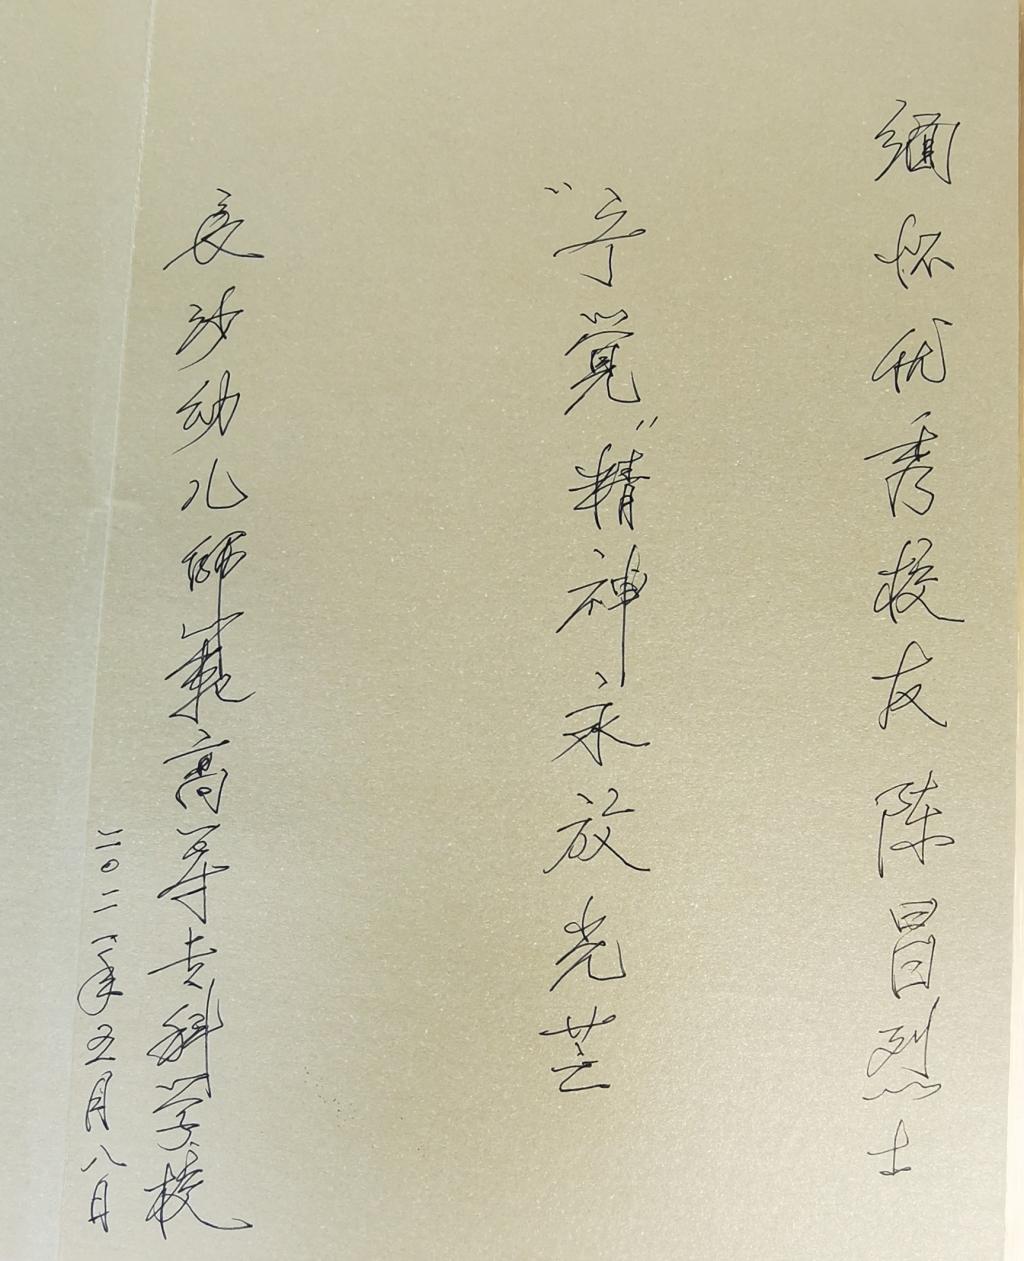 缅怀优秀校友陈昌烈士
“宁觉”精神永放光芒
长沙幼儿师范高等专科学校
二〇二一年五月八日